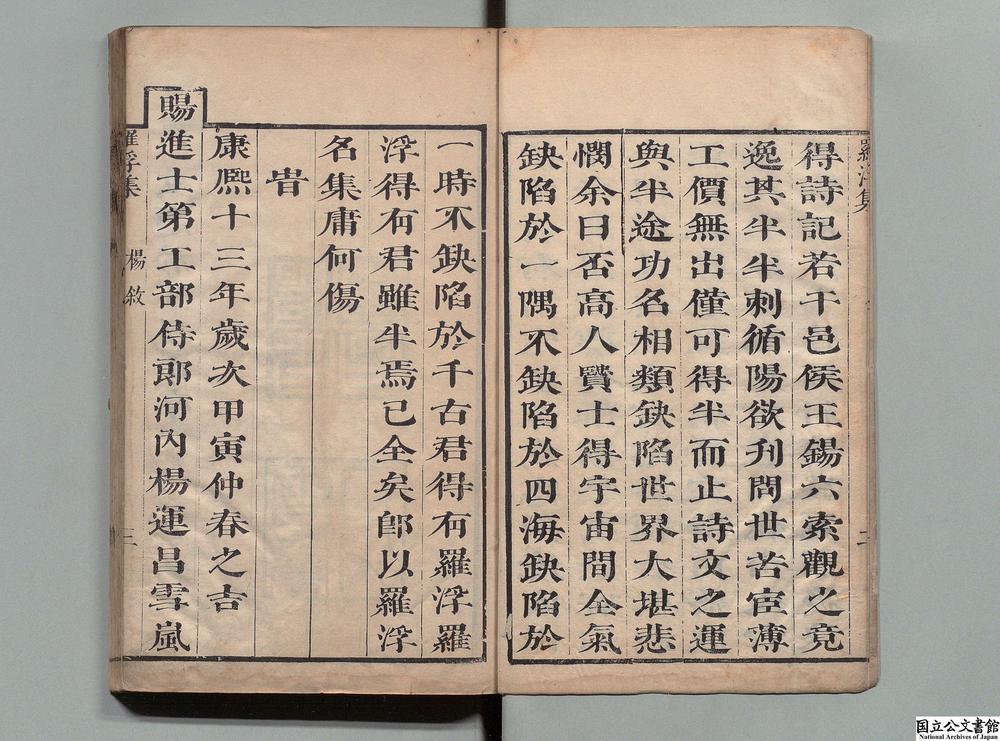 羅浮集
二
得詩記若干邑侯王錫六索觀之竟
逸其半半刺循陽欲刋問世苦宦薄
工價無出僅可得半而止詩文之運
與半途功名相類缺陷世界大堪悲
憫余曰否高人賢士得宇宙間全氣
缺陷於一隅不缺陷於四海缺陷於
一時不缺陷於千古君得有羅浮羅
浮得有君雖半焉已全矣卽以羅浮
名集庸何傷
旹
康熈十三年歲次甲寅仲春之吉
賜進士第工部侍郞河內楊運昌雪嵐
羅浮集
楊敘
三
国立公文書館
National Archives of Japan